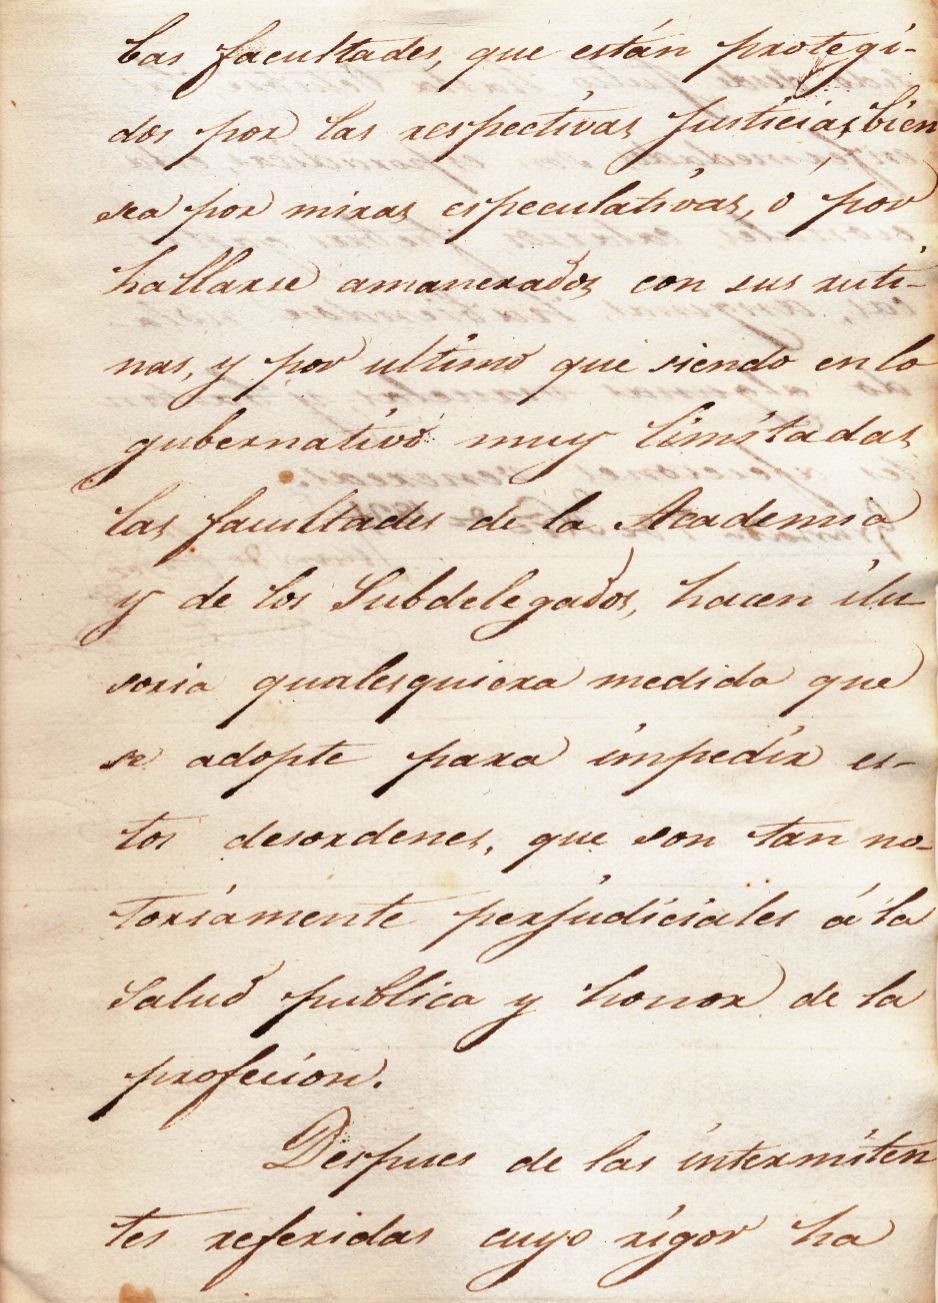 bas facultades, que están protegi-
dos por las respectivas Justicias, bien
sea por miras especulativas, ó por
hallarse amanerados con sus ruti-
nas, y por ultimo que siendo en lo
gubernativo muy limitadas
las facultades de la Academia
y de los Subdelegados, hacen ilu-
soria qualesquiera medida que
se adopte para impedir es-
tos desordenes, que son tan no-
toriamente perjudiciales á la
Salud publica y honor de la
profecion.
Despues de las intermiten
tes referidas cuyo rigor ha